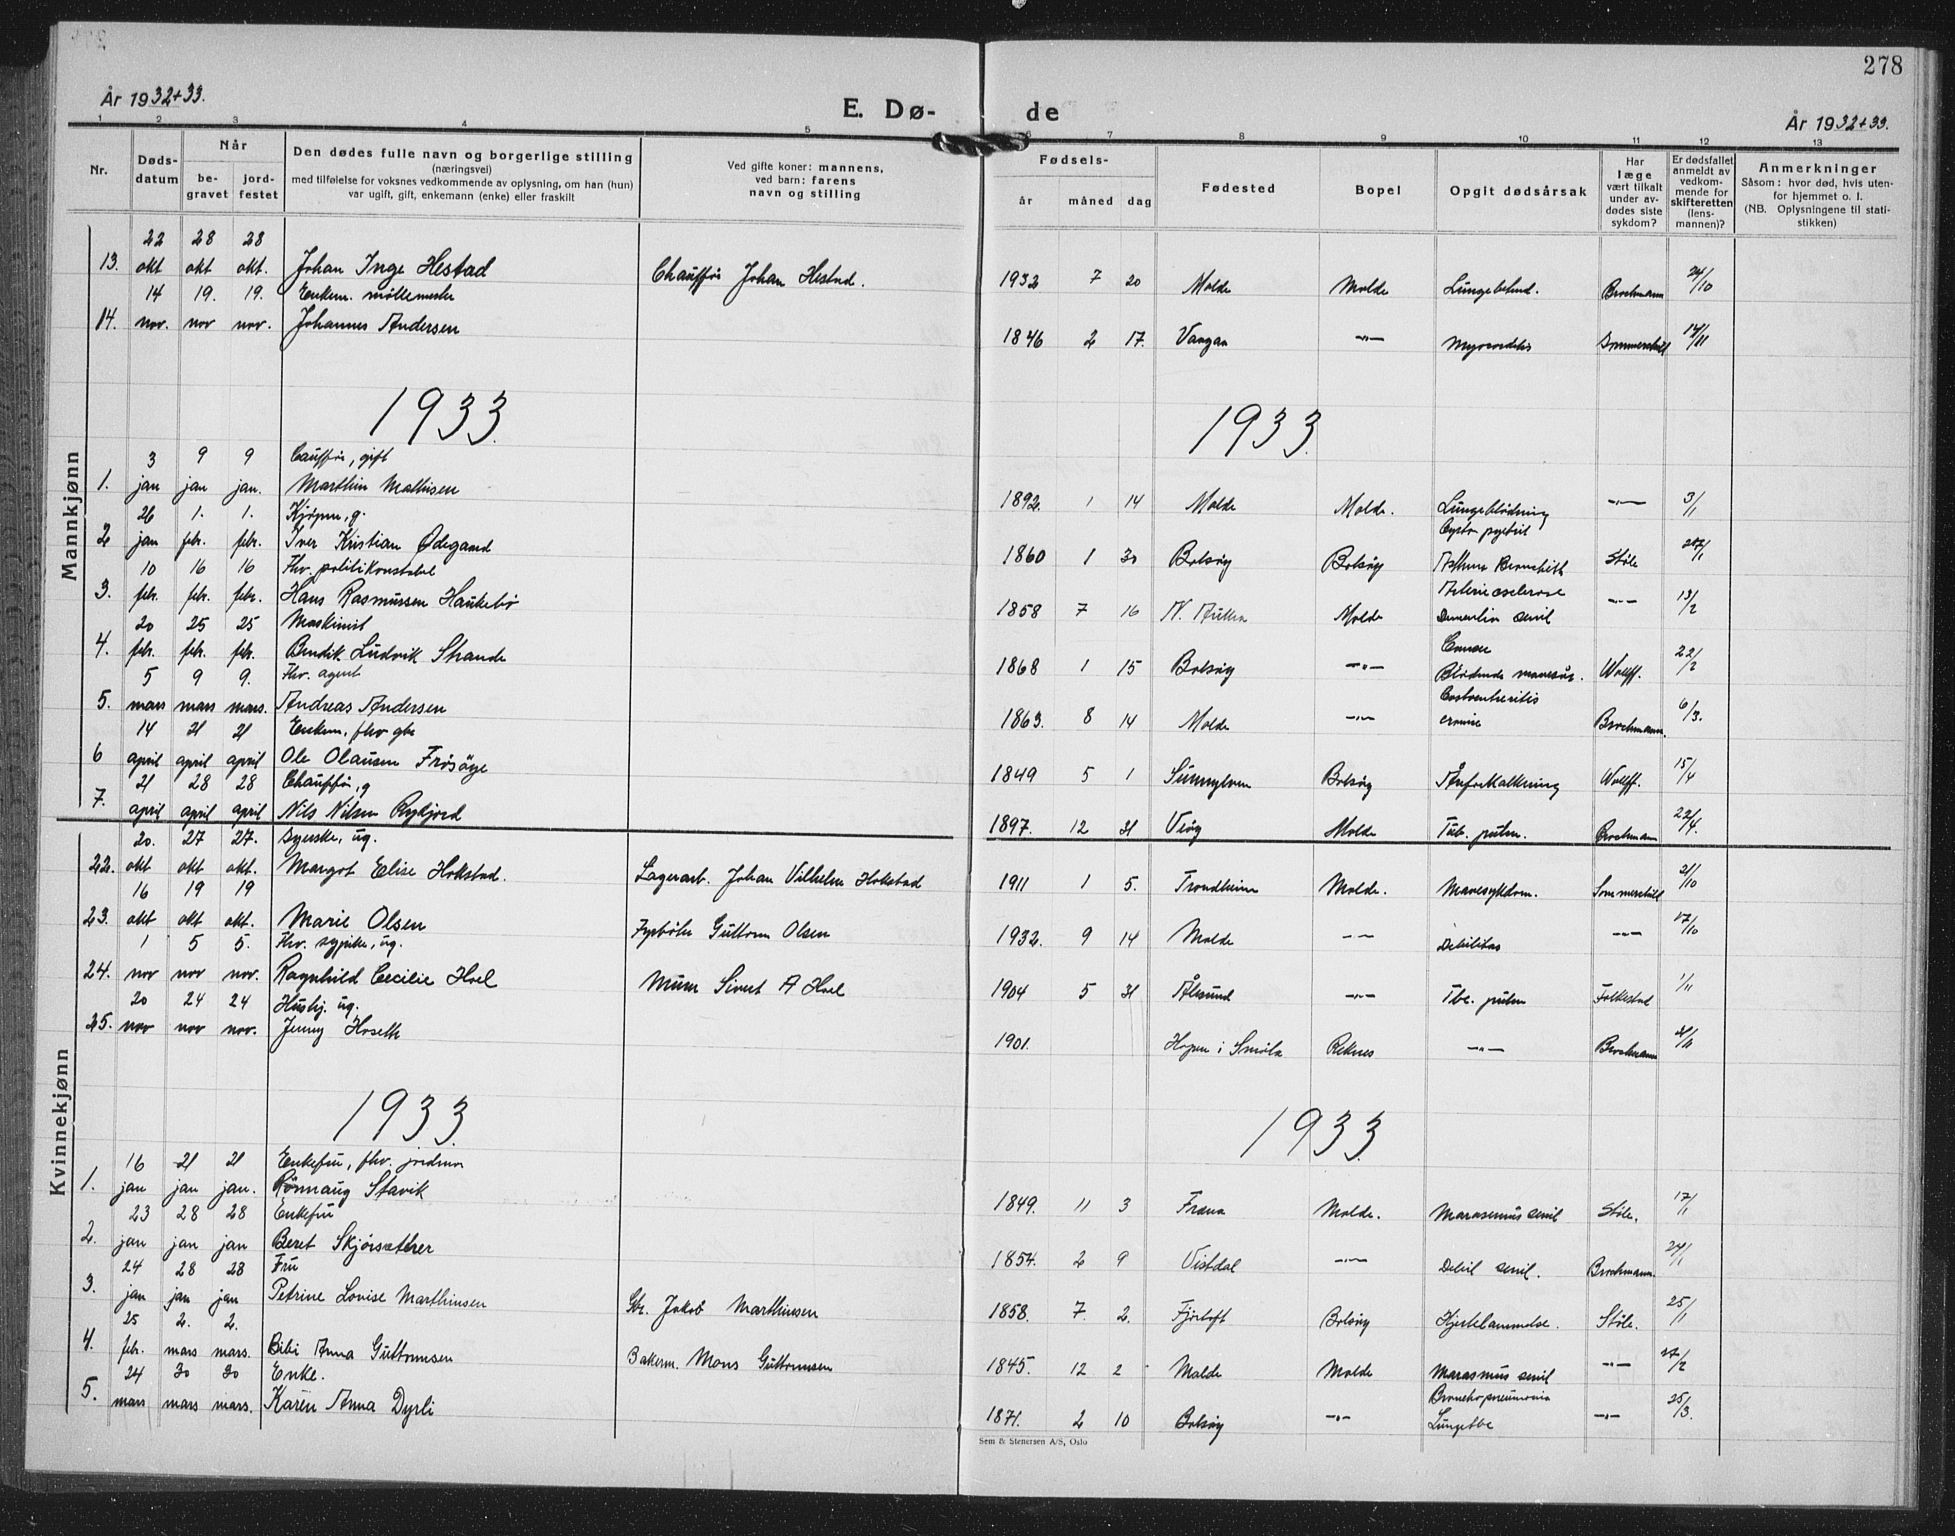 278
År 1932+33.
E. Dø- de
År 1932+33.
1 2 3 4 5 6 7 8 9 10 11 12 13
Nr.
Døds-
datum
Når
be-
gravet
jord-
festet
Den dødes fulle navn og borgerlige stilling
(næringsvei)
med tilføielse for voksnes vedkommende av oplysning, om han (hun)
var ugift, gift, enkemann (enke) eller fraskilt
Ved gifte koner: mannens,
ved barn: farens
navn og stilling
Fødsels-
år måned dag
Fødested
Bopel
Opgit dødsårsak
Har
læge
vært tilkalt
under av-
dødes siste
sykdom?
Er dødsfallet
anmeldt av
vedkom-
mende for
skifteretten
(lens-
mannen)?
Anmerkninger
Såsom: hvor død, hvis uten-
for hjemmet o. l.
(NB. Oplysningene til stati-
stikken)
Mannkjønn
22 28 28
13. okt okt okt. Johan Inge Hestad Chauffør Johan Hestad. 1932 7 20 Molde Molde Lungebetend. Brochmann 24/10
14 19. 19. Enkem. møllemester
14. nov. nov nov. Johannes Andersen 1846 2 17. -"- 14/11
1933 1933.
3 9 9 Cauffør, gift
1. jan jan jan. Marthin Mathisen 1892. 1 14 Molde Molde. Lungeblødning -"- 3/1
26 1. 1. Kjøpm, g.
2 jan febr. febr. Iver Kristian Ødegaard 1860 1 30 Bolsøy Bolsøy Støle
10 16 16 Fhv. politikonstabel
3. febr. febr. febr. Hans Rasmussen Haukebø 1858 7 16 Molde Dementia senil -"- 13/2
20 25 25 Maskinist
4. febr. febr. febr. Bendik Ludvik Strande 1868 1 15 Bolsøy -"- Blødende mavesår. Wolff. 22/2
5 9 9. Fhv. agent
5. mars mars mars. Andreas Andersen 1863. 8 14 Molde -"- Brochmann. 6/3.
14 21 21 Enkem, fhv gbr
6 april april april Ole Olausen Frøsøye 1849 5 1 Sunnylven Bolsøy Åreforkalkning Wolff. 15/4
21 28 28 Chauffør, g
7. april april april Nils Nilsen 1897. 12 31 Veøy Molde Tub. pulm. Brochmann 22/4.
Kvinnekjønn
20. 27 27. Syerske, ug.
22. okt okt okt. Margot Elise Hokstad. Lagerarb. Johan Vilhelm Hokstad 1911 1 5. Trondheim Molde. Mavesykdom. Sommerschild 21/10
16 19 19
23. okt okt okt. Marie Olsen Fyrbøter Guttorm Olsen 1932. 9 14 Molde -"- Debilitas -"- 17/10
1 5 5. Fhv. sypike, ug.
24. nov nov nov. Ragnhild Cecilie Hoel Murer Sivert A Hoel 1904 5 31 Ålesund -"- Tbc. pulm Folkestad 1/11
20 24 24 Hushj. ug.
25. nov nov nov. Jenny Hoseth 1901. Hopen i Smøla Reknes -"- Brochmann
1933. 1933.
16 21 21 Enkefru, fhv. jordmor
1. jan jan jan. Rönnaug Stavik 1849. 11 3 Fræna Molde. Marasmus senil Støle. 17/1
23 28 28 Enkefru
2. jan jan jan Beret Skjørsæther 1854. 2 9 Vistdal -"- Debil senil. Brochmann. 24/1
24 28 28 Fru
3. jan jan jan Petrine Lovise Marthinsen Gbr. Jakob Marthinsen 1858. 7. 2. Fjørtoft Bolsøy Hjertelammelse. Støle. 25/1
25 2. 2.
4. febr. mars mars. Bibi Anna Guttormsen Bakerm. Mons Guttormsen 1845. 12 2 Molde Molde Marasmus senil -"- 27/2
24 30 30 Enke.
5. mars mars mars. Karen Anna Dyrli 1871. 2 10 Bolsøy -"- Bronchopneumonia Lungetbc -"- 25/3.
Sem & Stenersen A/S, Oslo